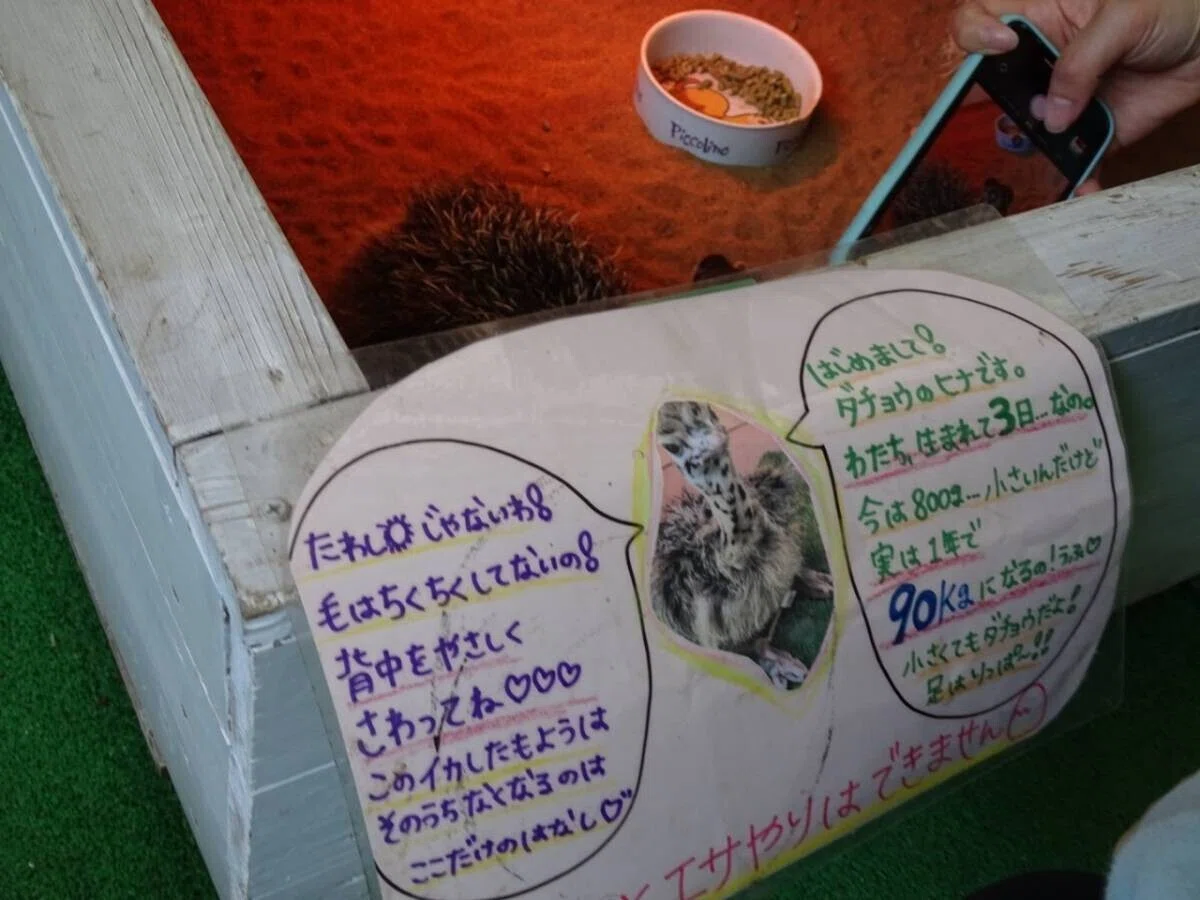 Piccolino
はじめまして!
ダチョウのヒナです。
わたち、生まれて3日…なの。
今は800g…小さいんだけど
実は1年で
90Kgになるの!うふ♡
小さくてもダチョウだよ!
足はりっぱ〜!!
たわしじゃないわ!
毛はちくちくしてないの!
背中をやさしく
さわってね♡♡♡
このイカしたもようは
そのうちなくなるのは
ここだけのはなし♡
エサやりはできません